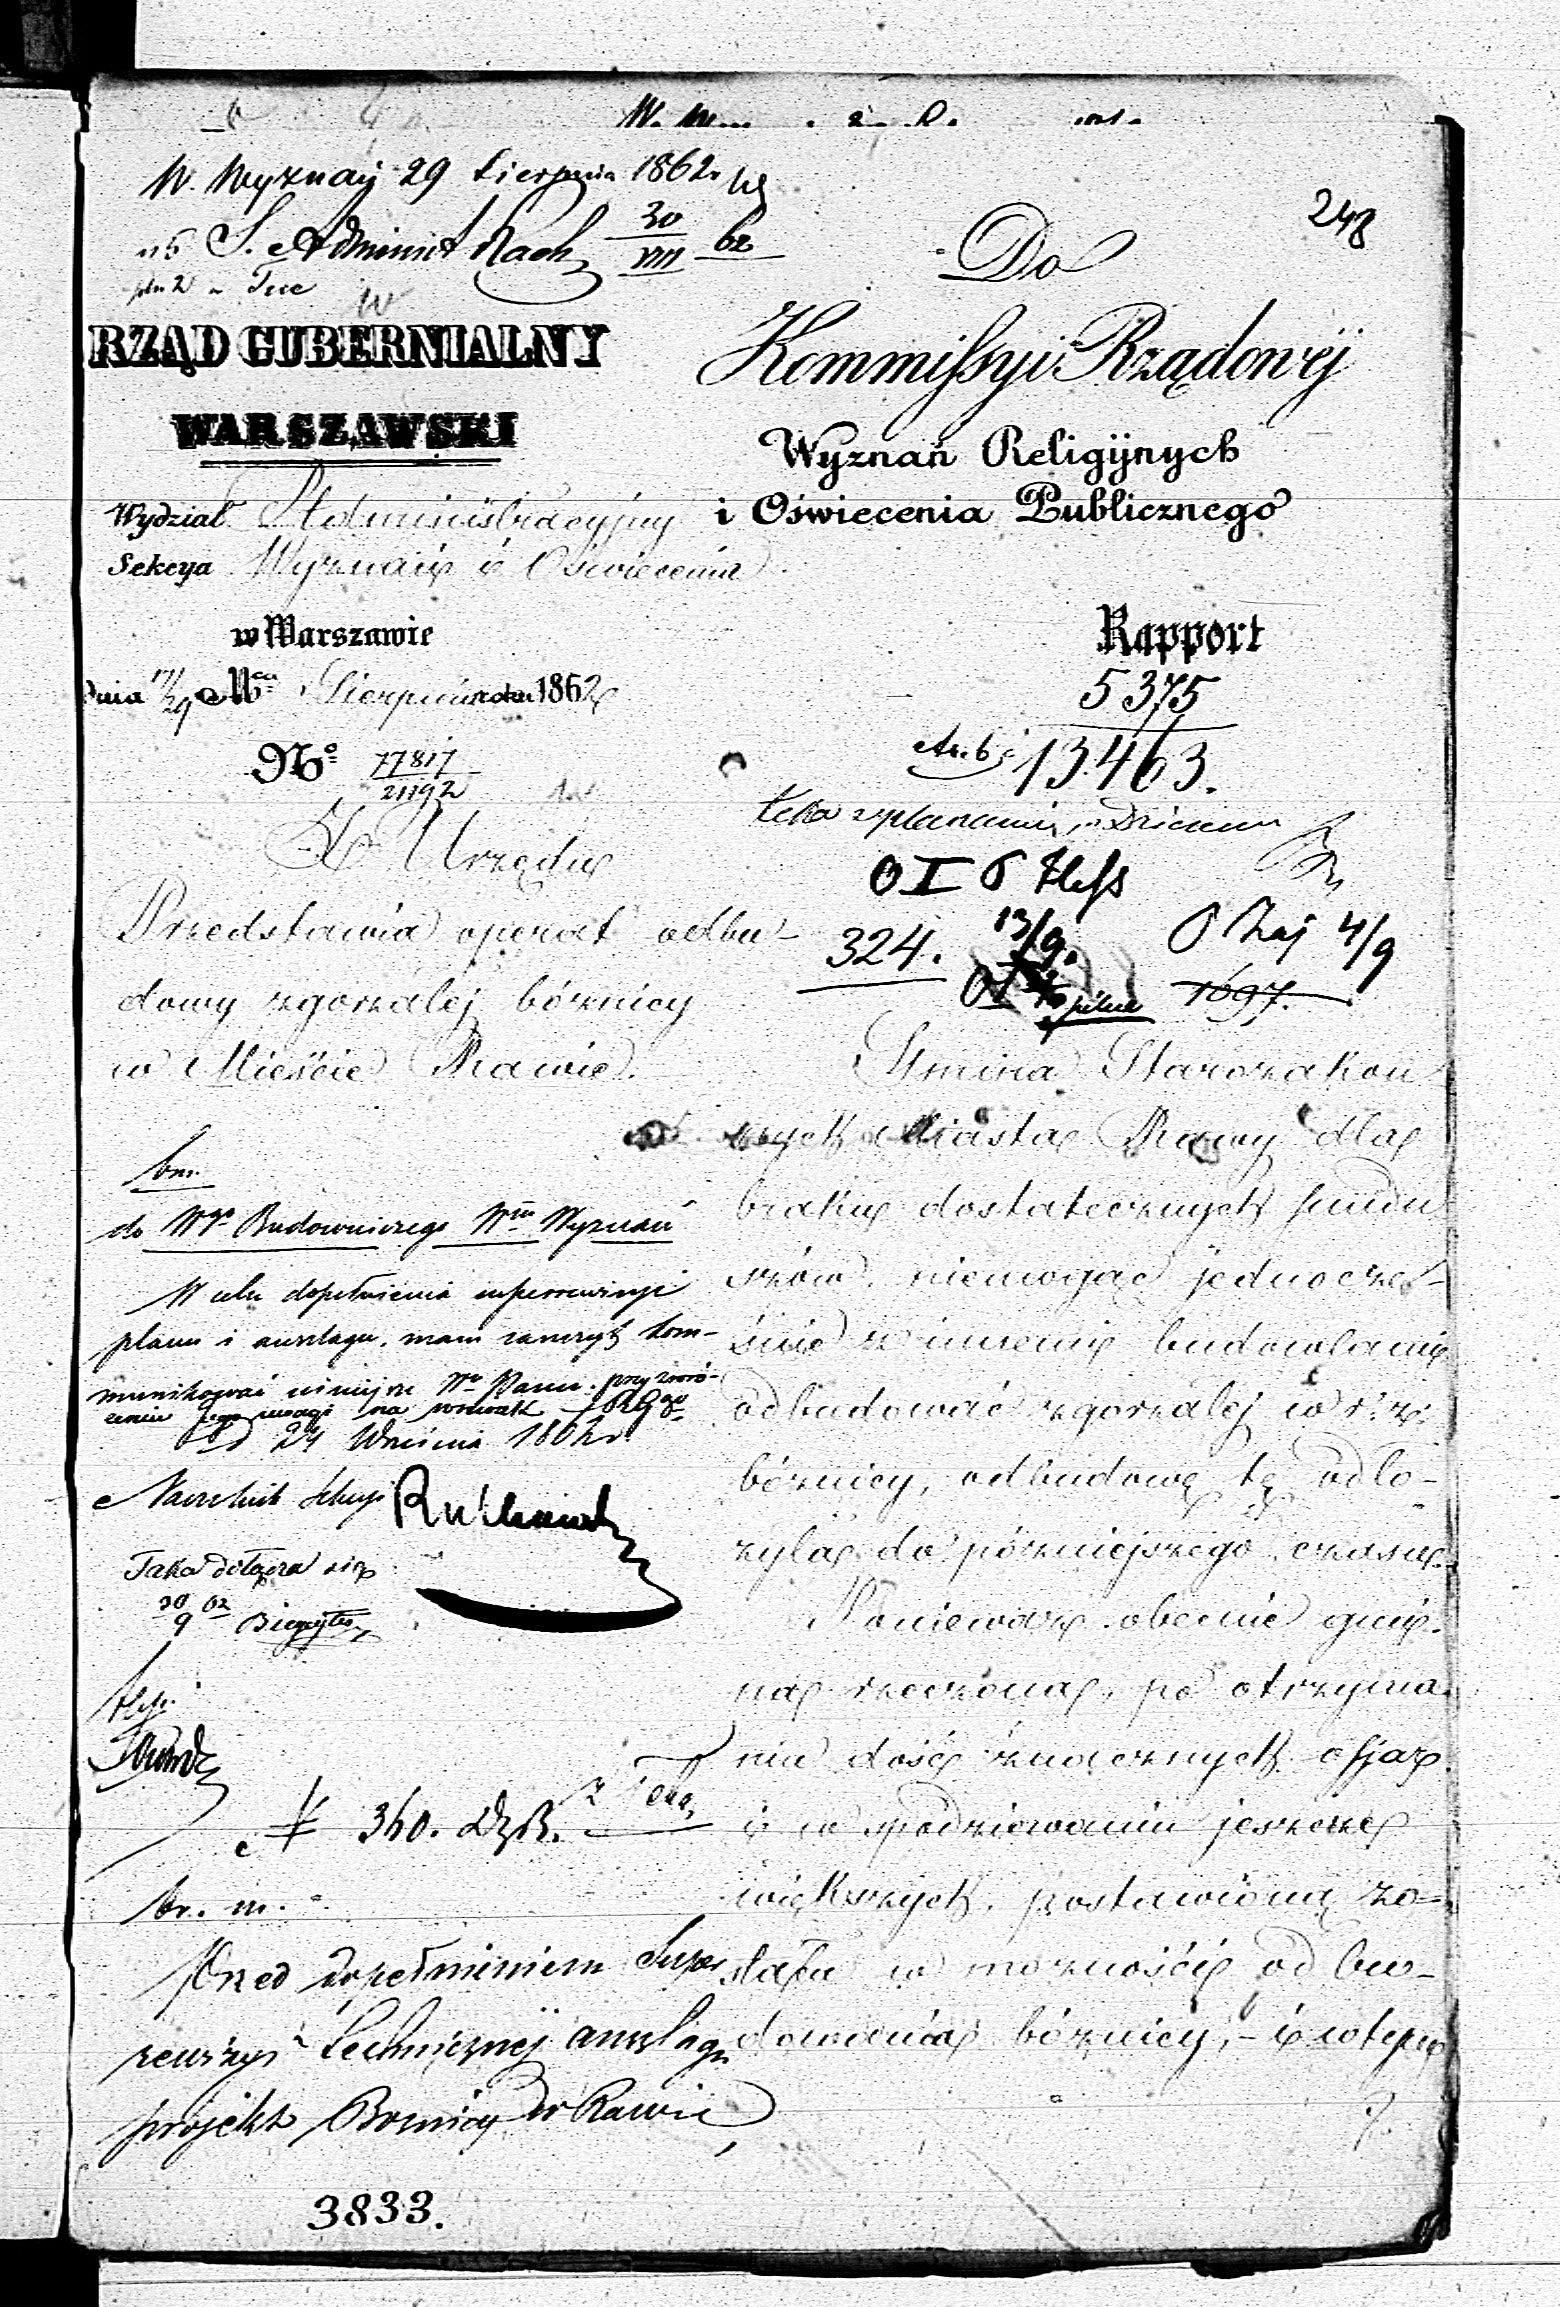 W. Wyznań 29 Sierpnia 1862
S. Administ Rach 30/VIII 62
248
Do
Kommissyi Rządowéj
Wyznań Religijnych
i Oświecenia Publicznego
RZĄD GUBERNIALNY
WARSZAWSKI
Wydział Administracyjny
Sekcya Wyznań i Oświecenia
w Warszawie
Dnia 17/29 Mca Sierpnia roku 1862
No 77817/21192
Z Urzędu
Przedstawia operat odbu-
dowy zgorzałej bóżnicy
w Mieście Rawie.
Rapport
5375
13463.
Teka z planami
324. 13/9. 4/9
pilne 1697.
Gmina Starozakon
nych Miasta Rawy dla
braku dostatecznych fundu
szów, niemogąc jednocze-
śnie z innemi budowlami
odbudować zgorzałej w r. z.
bóżnicy, odbudowę tę odło-
żyła do późniejszego czasu.
Ponieważ obecnie gmi-
na rzeczona, po otrzyma
niu dość znacznych ofiar
i w spodziewaniu jeszcze
większych, postawioną zo-
stała w możności odbu-
dowania bóżnicy, - i w tym
br. m.
do Wgo Budowniczego Wm Wyznań
W celu dopełnienia superrewizyi
planu i anszlagu, mam zaszczyt kom-
munikować niniejsze Wu Panu, przy zwró-
ceniu jego uwagi na wniosek
d 24 Września 1862 r.
Naczelnik Sekcyi
Teka dołącza się
30/9 62
N 360. z Teką
br. m.
Przed dopełnieniem Super
rewizyi technicznej anszlagu
projekt Bożnicy w Rawie,
3833.